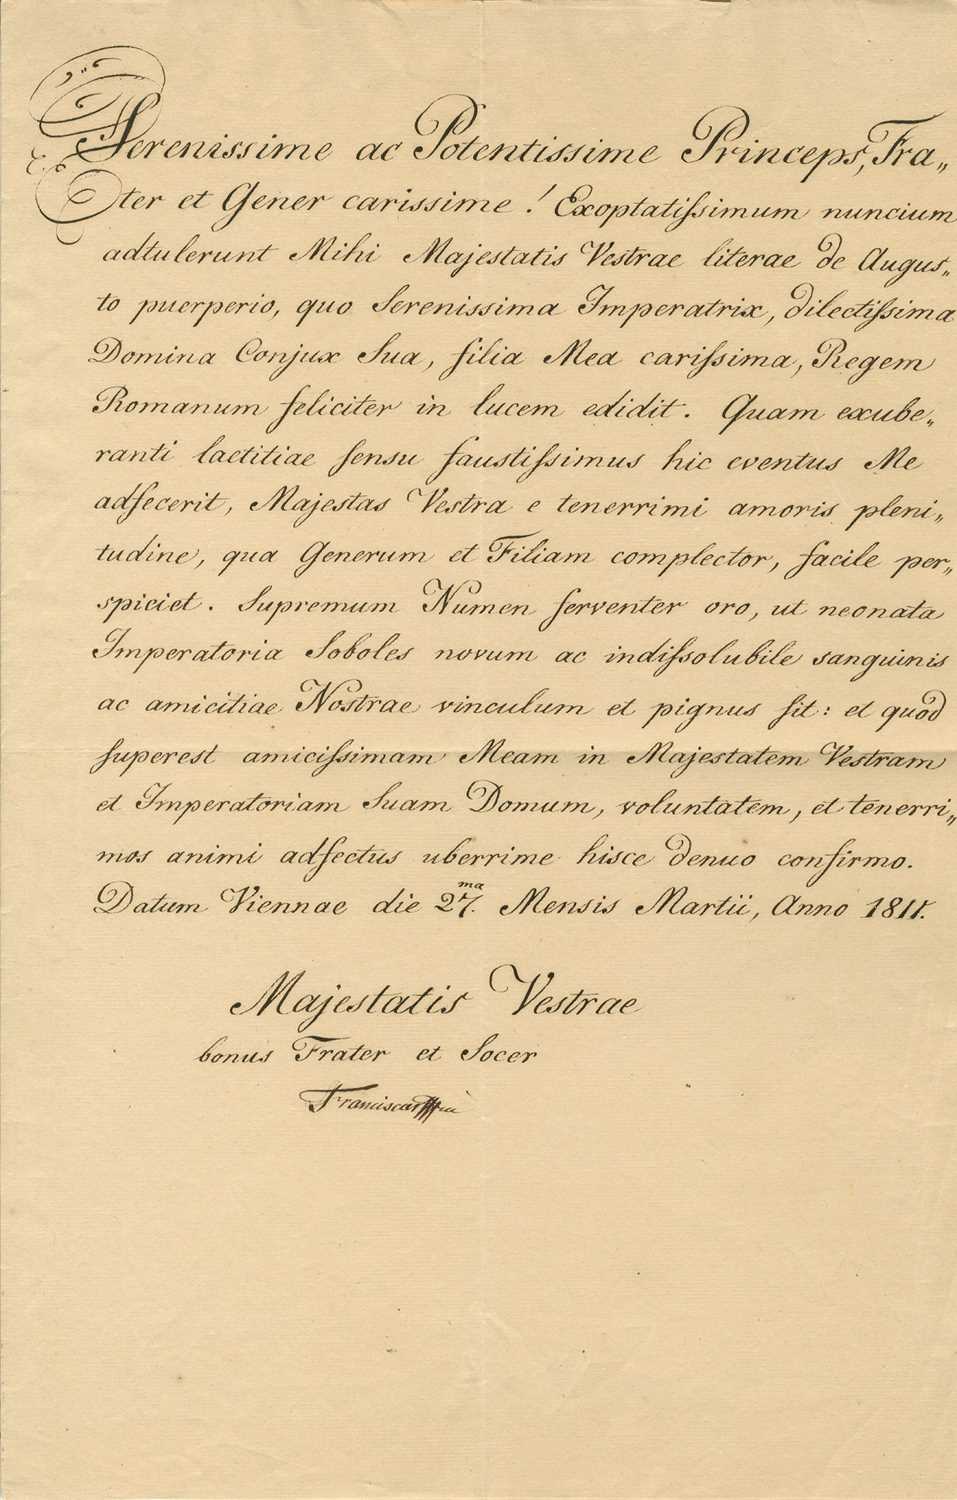 Serenissime ac Potentissime Princeps, Fra„
ter et Gener carissime! Exoptatiſsimum nuncium
adtulerunt Mihi Majestatis Vestrae literae de Augus„
to puerperio, quo Serenissima Imperatrix, dilectiſsima
Domina Conjux Sua, filia Mea cariſsima, Regem
Romanum feliciter in lucem edidit. Quam exube„
ranti laetitiae sensu faustiſsimus hic eventus Me
adfecerit, Majestas Vestra e tenerrimi amoris pleni„
tudine, qua Generum et Filiam complector, facile per„
spiciet. Supremum Numen ferventer oro, ut neonata
Imperatoria Soboles novum ac indiſsolubile sanguinis
ac amicitiae Nostrae vinculum et pignus sit: et quod
superest amiciſsimam Meam in Majestatem Vestram
et Imperatoriam Suam Domum, voluntatem, et tenerri„
mos animi adfectus uberrime hisce denuo confirmo.
Datum Viennae die 27.ma Mensis Martii, Anno 1811.
Majestatis Vestrae
bonus Frater et Socer
Franciscus